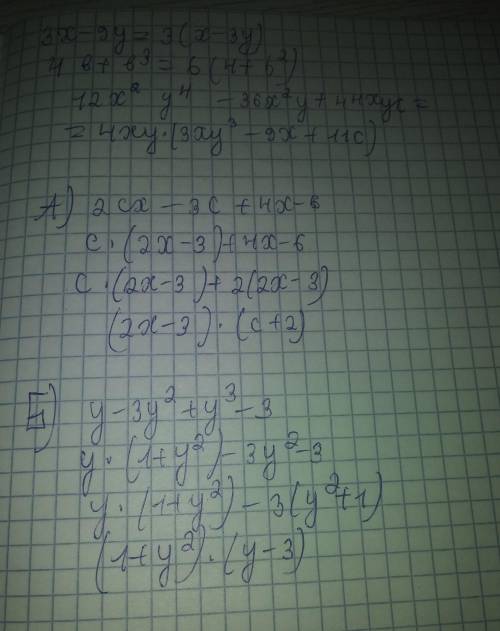 3x-9y=3(x-3y)
4в+в³=в(4+в²)
12x² y⁴ -36x²y+44xyc=
=4xy·(3xy³-9x+11c)
А) 2cx-3c+4x-6
c·(2x-3)+4x-6
c·(2x-3)+2(2x-3)
(2x-3)·(c+2)
Б) y-3y²+y³-3
y·(1+y²)-3y²-3
y·(1+y²)-3(y²+1)
(1+y²)·(y-3)